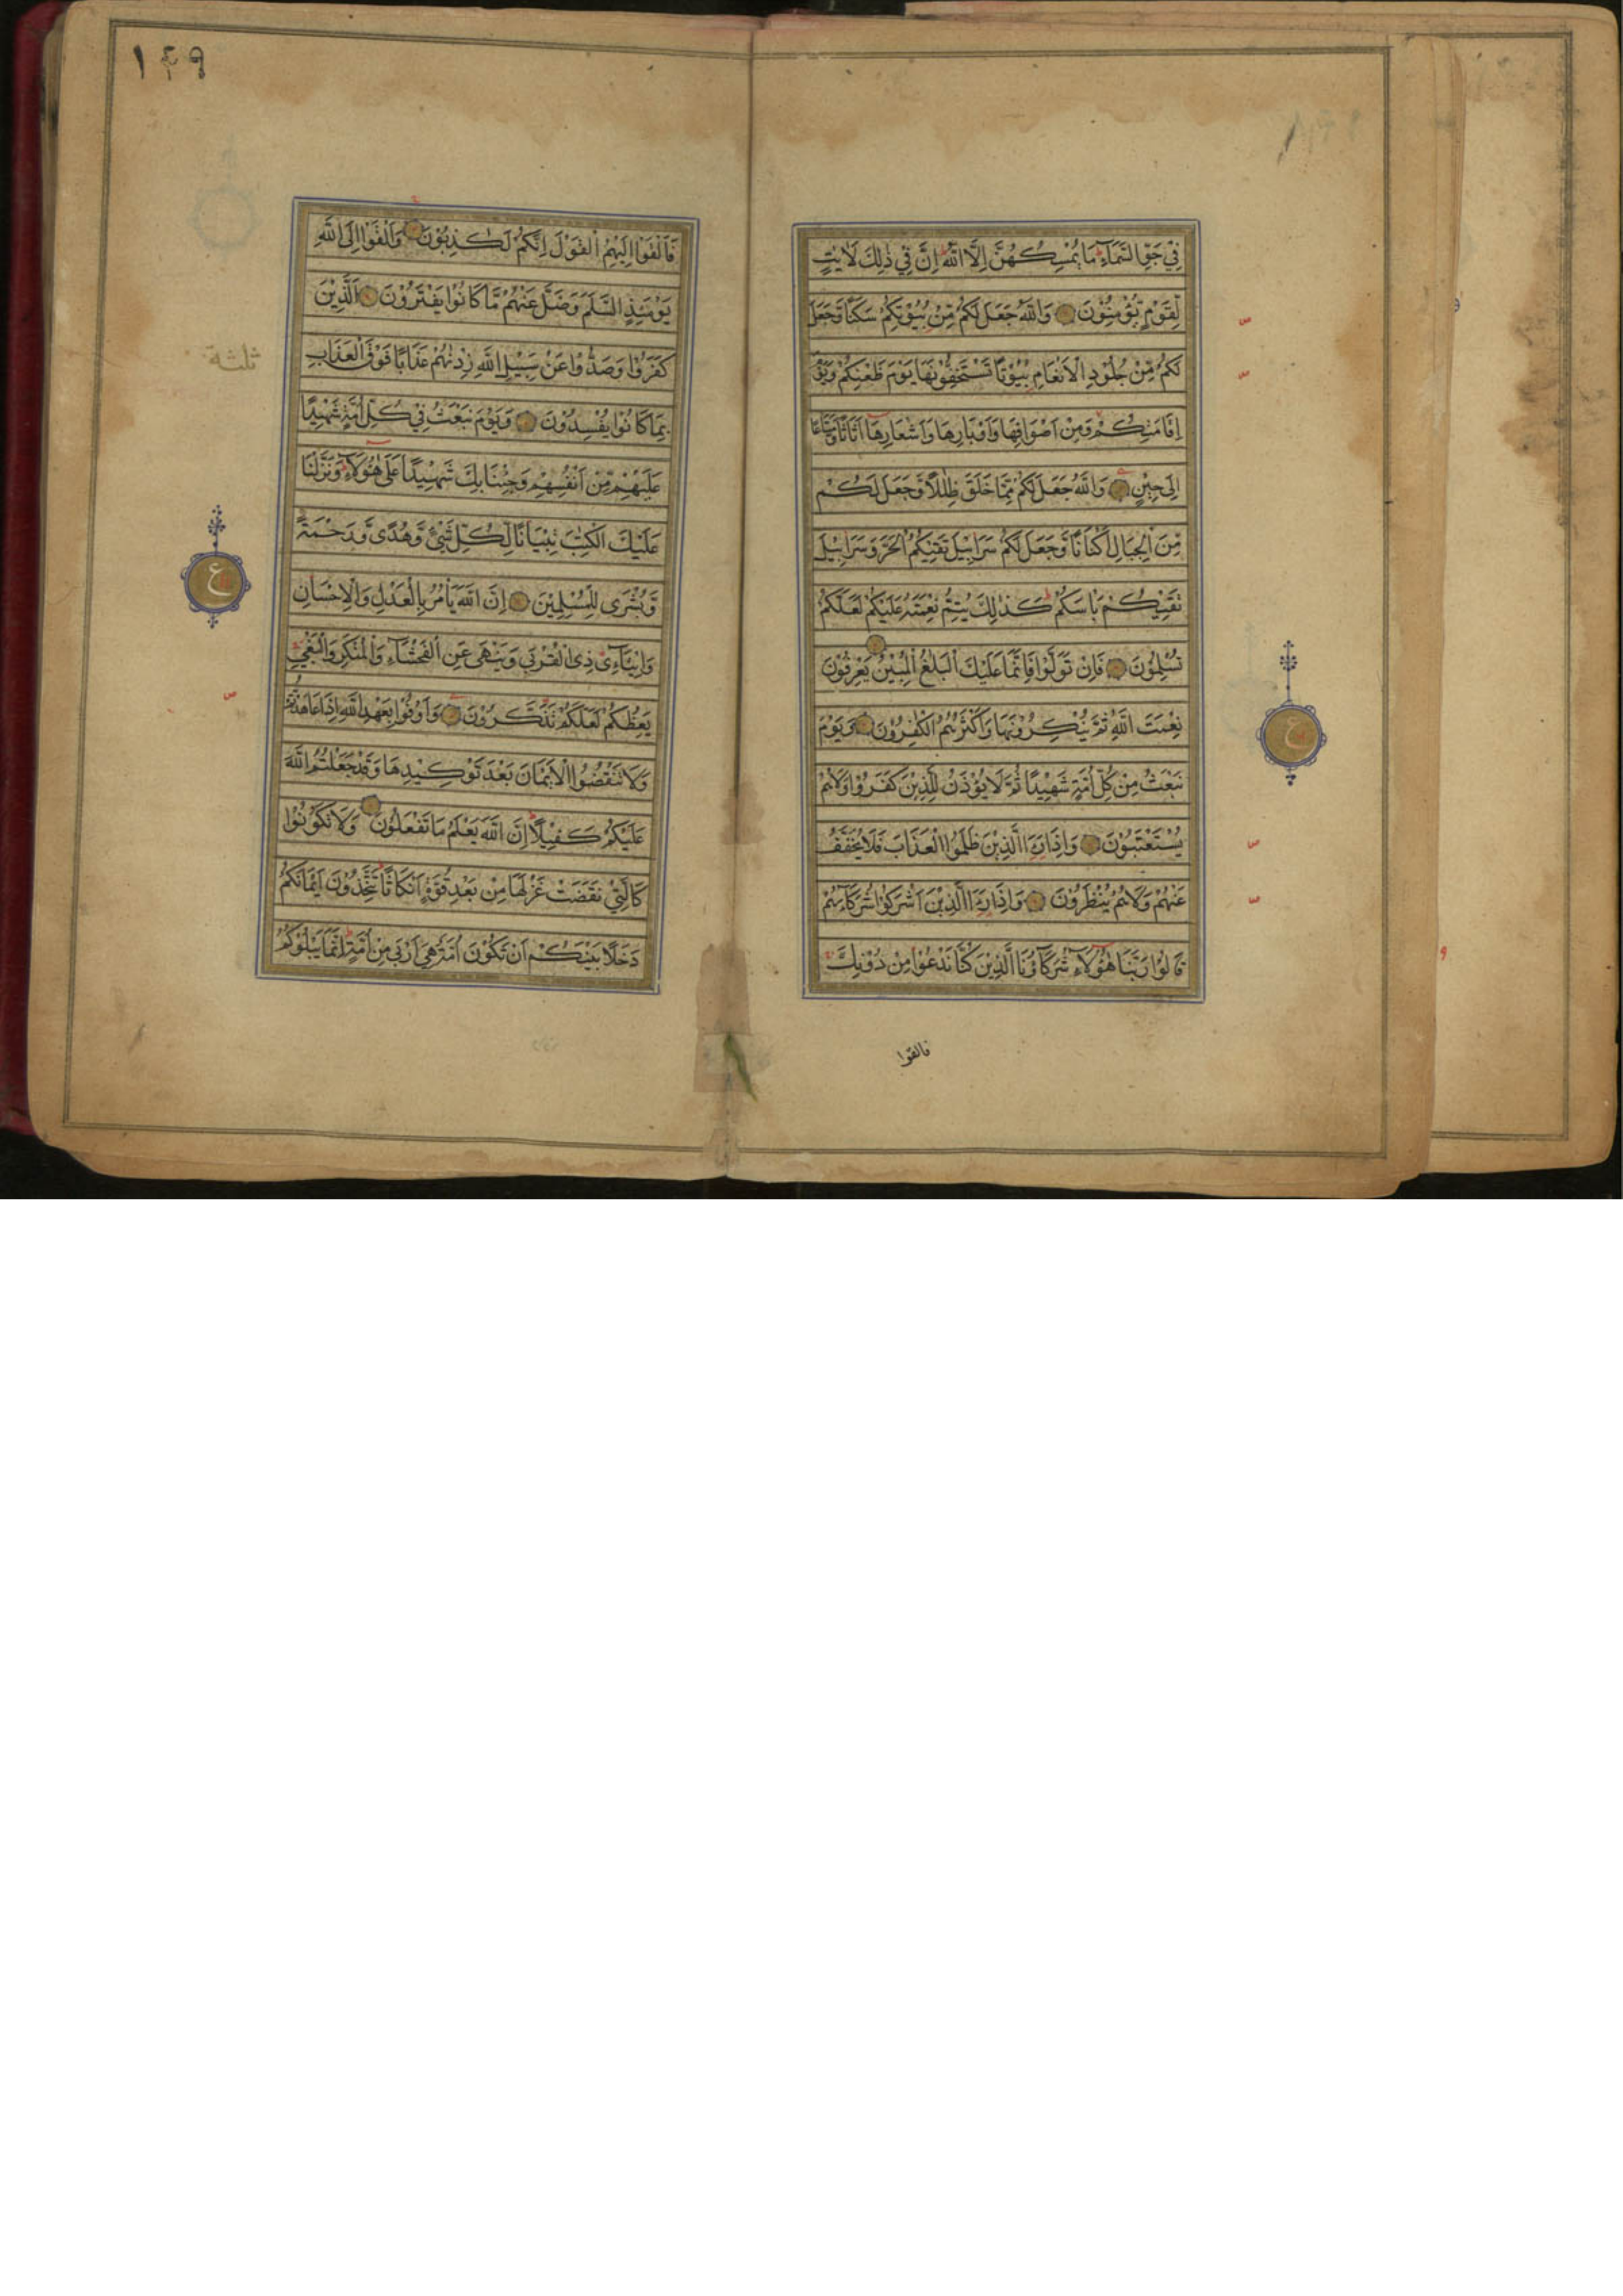 فِيْ جَوِّ السَّمَآءِ مَا يُمْسِكُهُنَّ اِلَّا اللّٰهُ اِنَّ فِيْ ذٰلِكَ لَاٰيٰتٍ
لِّقَوْمٍ يُّؤْمِنُوْنَ وَاللّٰهُ جَعَلَ لَكُمْ مِّنْ بُيُوْتِكُمْ سَكَنًا وَّجَعَلَ
لَكُمْ مِّنْ جُلُوْدِ الْاَنْعَامِ بُيُوْتًا تَسْتَخِفُّوْنَهَا يَوْمَ ظَعْنِكُمْ وَيَوْمَ
اِقَامَتِكُمْ وَمِنْ اَصْوَافِهَا وَاَوْبَارِهَا وَاَشْعَارِهَا اَثَاثًا وَّمَتَاعًا
اِلٰى حِيْنٍ وَاللّٰهُ جَعَلَ لَكُمْ مِّمَّا خَلَقَ ظِلٰلًا وَّجَعَلَ لَكُمْ
مِّنَ الْجِبَالِ اَكْنَانًا وَّجَعَلَ لَكُمْ سَرَابِيْلَ تَقِيْكُمُ الْحَرَّ وَسَرَابِيْلَ
تَقِيْكُمْ بَاْسَكُمْ كَذٰلِكَ يُتِمُّ نِعْمَتَهُ عَلَيْكُمْ لَعَلَّكُمْ
تُسْلِمُوْنَ فَاِنْ تَوَلَّوْا فَاِنَّمَا عَلَيْكَ الْبَلٰغُ الْمُبِيْنُ يَعْرِفُوْنَ
نِعْمَتَ اللّٰهِ ثُمَّ يُنْكِرُوْنَهَا وَاَكْثَرُهُمُ الْكٰفِرُوْنَ وَيَوْمَ
نَبْعَثُ مِنْ كُلِّ اُمَّةٍ شَهِيْدًا ثُمَّ لَا يُؤْذَنُ لِلَّذِيْنَ كَفَرُوْا وَلَا هُمْ
يُسْتَعْتَبُوْنَ وَاِذَا رَاَ الَّذِيْنَ ظَلَمُوا الْعَذَابَ فَلَا يُخَفَّفُ
عَنْهُمْ وَلَا هُمْ يُنْظَرُوْنَ وَاِذَا رَاَ الَّذِيْنَ اَشْرَكُوْا شُرَكَآءَهُمْ
قَالُوْا رَبَّنَا هٰٓؤُلَآءِ شُرَكَآؤُنَا الَّذِيْنَ كُنَّا نَدْعُوْا مِنْ دُوْنِكَ
فالقوا
١٤٩
فَاَلْقَوْا اِلَيْهِمُ الْقَوْلَ اِنَّكُمْ لَكٰذِبُوْنَ وَاَلْقَوْا اِلَى اللّٰهِ
يَوْمَئِذِ السَّلَمَ وَضَلَّ عَنْهُمْ مَّا كَانُوْا يَفْتَرُوْنَ اَلَّذِيْنَ
كَفَرُوْا وَصَدُّوْا عَنْ سَبِيْلِ اللّٰهِ زِدْنٰهُمْ عَذَابًا فَوْقَ الْعَذَابِ
ثلثة
بِمَا كَانُوْا يُفْسِدُوْنَ وَيَوْمَ نَبْعَثُ فِيْ كُلِّ اُمَّةٍ شَهِيْدًا
عَلَيْهِمْ مِّنْ اَنْفُسِهِمْ وَجِئْنَا بِكَ شَهِيْدًا عَلٰى هٰٓؤُلَآءِ وَنَزَّلْنَا
عَلَيْكَ الْكِتٰبَ تِبْيَانًا لِّكُلِّ شَيْءٍ وَّهُدًى وَّرَحْمَةً
ع
وَّبُشْرٰى لِلْمُسْلِمِيْنَ اِنَّ اللّٰهَ يَاْمُرُ بِالْعَدْلِ وَالْاِحْسَانِ
وَاِيْتَآءِ ذِى الْقُرْبٰى وَيَنْهٰى عَنِ الْفَحْشَآءِ وَالْمُنْكَرِ وَالْبَغْيِ
يَعِظُكُمْ لَعَلَّكُمْ تَذَكَّرُوْنَ وَاَوْفُوْا بِعَهْدِ اللّٰهِ اِذَا عَاهَدْتُّمْ
وَلَا تَنْقُضُوا الْاَيْمَانَ بَعْدَ تَوْكِيْدِهَا وَقَدْ جَعَلْتُمُ اللّٰهَ
عَلَيْكُمْ كَفِيْلًا اِنَّ اللّٰهَ يَعْلَمُ مَا تَفْعَلُوْنَ وَلَا تَكُوْنُوْا
كَالَّتِيْ نَقَضَتْ غَزْلَهَا مِنْ بَعْدِ قُوَّةٍ اَنْكَاثًا تَتَّخِذُوْنَ اَيْمَانَكُمْ
دَخَلًا بَيْنَكُمْ اَنْ تَكُوْنَ اُمَّةٌ هِيَ اَرْبٰى مِنْ اُمَّةٍ اِنَّمَا يَبْلُوْكُمُ